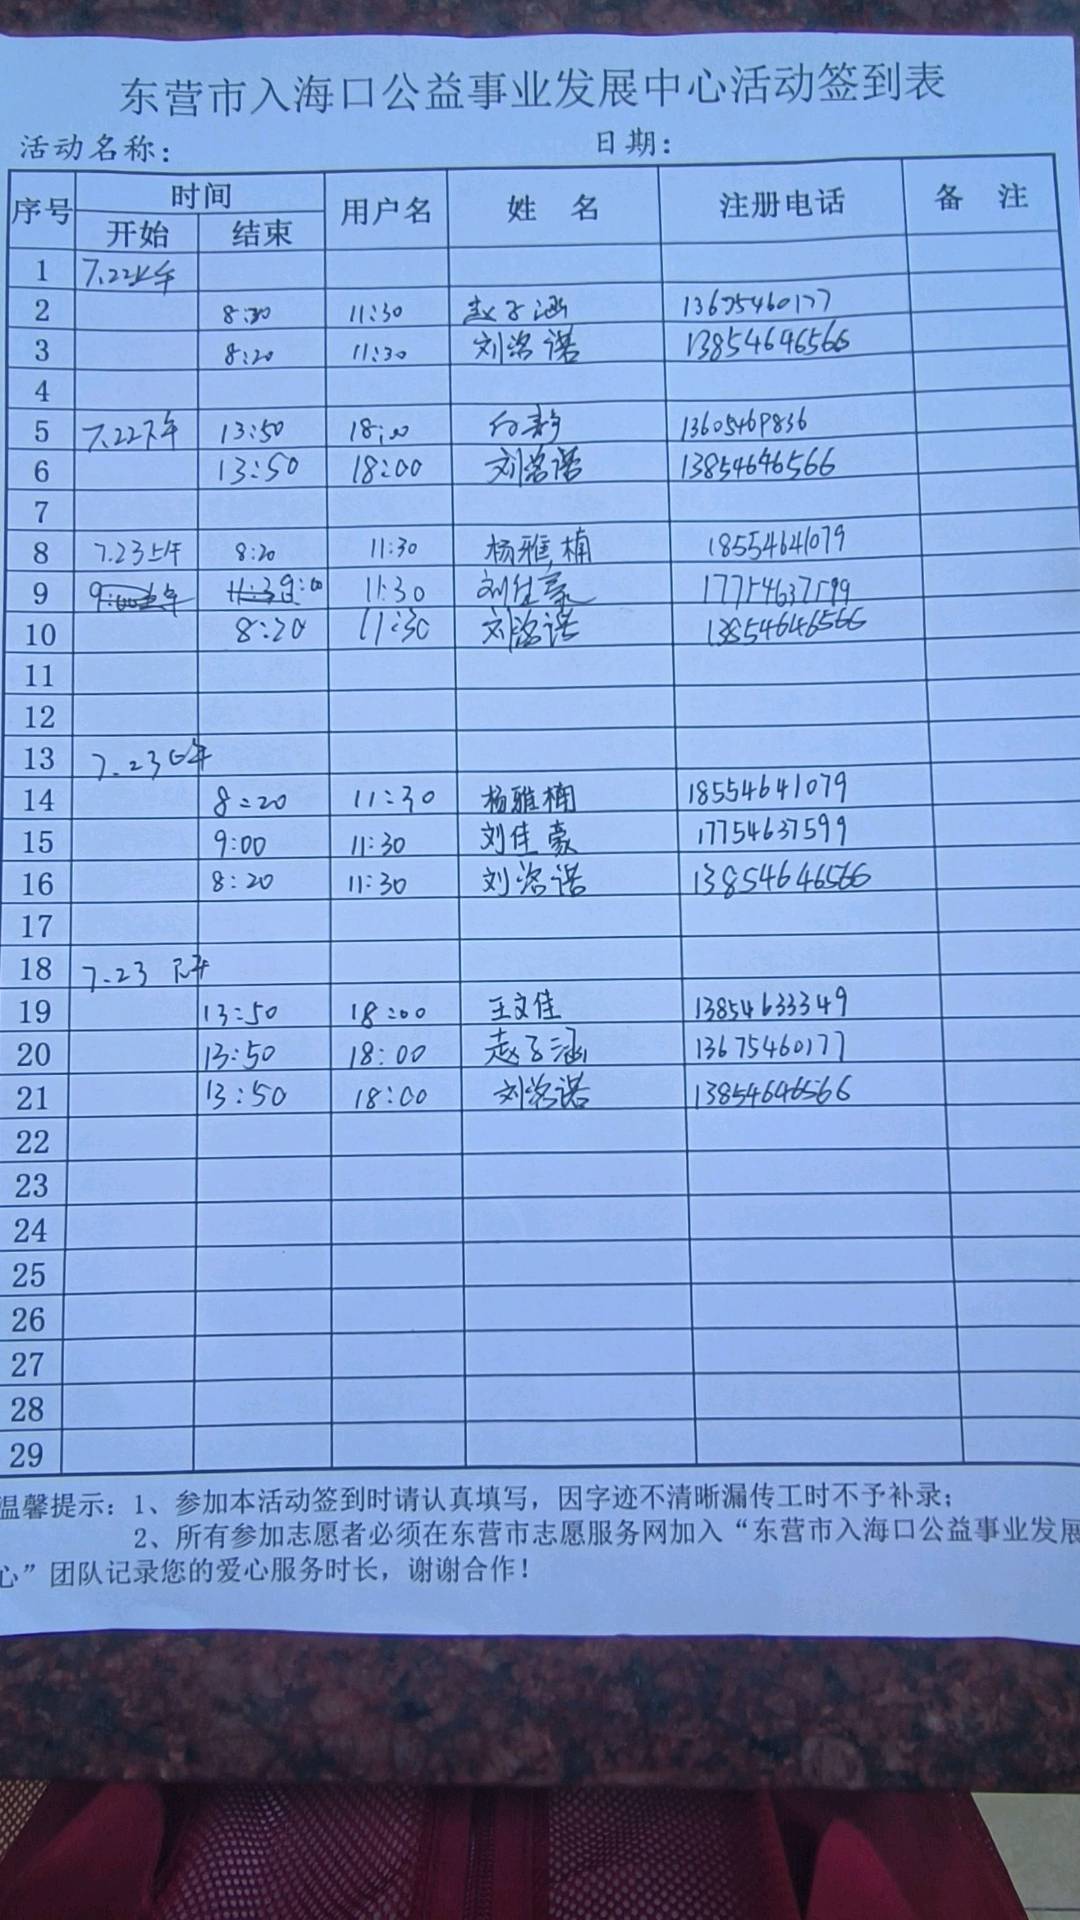 东营市入海口公益事业发展中心活动签到表
活动名称: 日期:
序号 时间 用户名 姓 名 注册电话 备 注
开始 结束
1 7.22上午
2 8:30 11:30 赵子涵 13675460177
3 8:20 11:30 刘洺诺 13854646566
4
5 7.22下午 13:50 18:00 13605469836
6 13:50 18:00 刘洺诺 13854646566
7
8 7.23上午 8:20 11:30 杨雅楠 18554641079
9 9:00 11:30 刘佳豪 17754637599
10 8:20 11:30 刘洺诺 13854646566
11
12
13 7.23上午
14 8:20 11:30 杨雅楠 18554641079
15 9:00 11:30 刘佳豪 17754637599
16 8:20 11:30 刘洺诺 13854646566
17
18 7.23 下午
19 13:50 18:00 王文佳 13854633349
20 13:50 18:00 赵子涵 13675460177
21 13:50 18:00 刘洺诺 13854646566
22
23
24
25
26
27
28
29
温馨提示: 1、参加本活动签到时请认真填写，因字迹不清晰漏传工时不予补录;
2、所有参加志愿者必须在东营市志愿服务网加入“东营市入海口公益事业发展
心”团队记录您的爱心服务时长，谢谢合作!